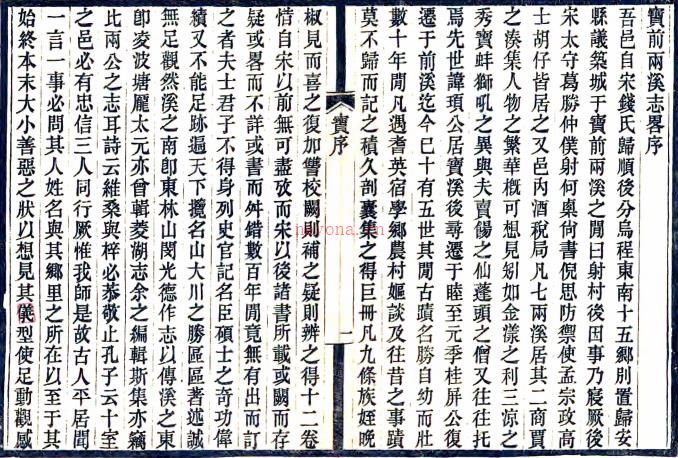 寶前兩溪志畧序
吾邑自宋錢氏歸順後分烏程東南十五鄉別置歸安
縣議築城于寶前兩溪之閒曰射村後因事乃寢厥後
宋太守葛勝仲僕射何㮚尚書倪思防禦使孟宗政高
士胡仔皆居之又邑内酒稅局凡七兩溪居其二商賈
之湊集人物之繁華概可想見矧如金漾之利三凉之
秀寶蚌獅吼之異與夫賣餳之仙蓬頭之僧又往往托
焉先世諱瑣公居寶溪後尋遷于睦至元季桂屏公復
遷于前溪迄今已十有五世其閒古蹟名勝自幼而壯
數十年閒凡遇耆英宿學鄉農村嫗談及往昔之事蹟
莫不歸而記之積久剖囊集之得巨冊凡九條族姪晩
寶序
一
椒見而喜之復加讐校闕則補之疑則辨之得十二卷
惜自宋以前無可盡攷而宋以後諸書所載或闕而存
疑或畧而不詳或書而舛錯數百年閒竟無有出而訂
之者夫士君子不得身列史官記名臣碩士之奇功偉
績又不能足跡遍天下攬名山大川之勝區區著述誠
無足觀然溪之南卽東林山閔光德作志以傳溪之東
卽凌波塘龐太元亦曾輯菱湖志余之編輯斯集亦竊
比兩公之志耳詩云維桑與梓必恭敬止孔子云十室
之邑必有忠信三人同行厥惟我師是故古人平居閒
一言一事必問其人姓名與其鄉里之所在以至于其
始終本末大小善惡之狀以想見其儀型使足動觀感